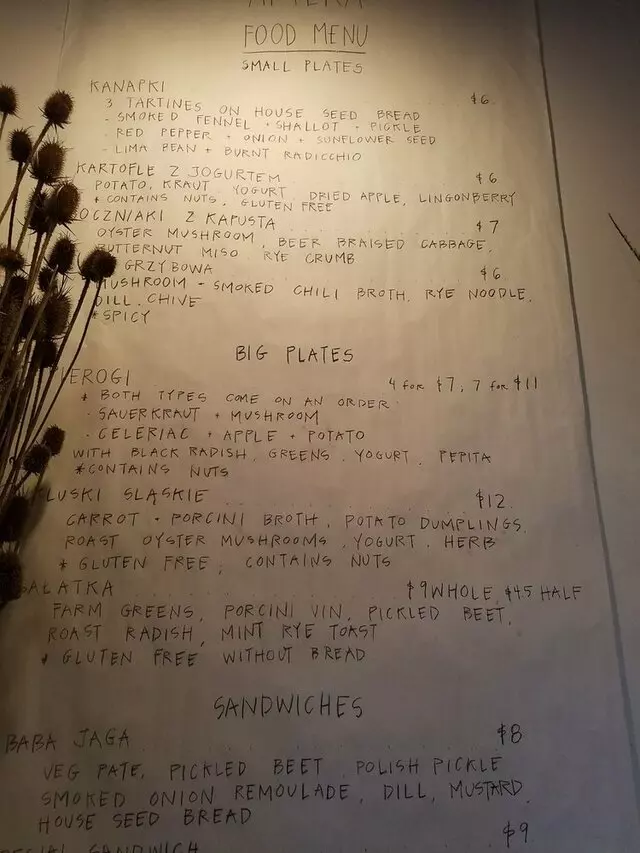 FOOD MENU
SMALL PLATES
KANAPKI $6
3 TARTINES ON HOUSE SEED BREAD
- SMOKED FENNEL + SHALLOT + PICKLE
- RED PEPPER + ONION + SUNFLOWER SEED
- LIMA BEAN + BURNT RADICCHIO
KARTOFLE Z JOGURTEM $6
POTATO, KRAUT, YOGURT, DRIED APPLE, LINGONBERRY
* CONTAINS NUTS, GLUTEN FREE
OCZNIAKI Z KAPUSTA $7
OYSTER MUSHROOM, BEER BRAISED CABBAGE,
BUTTERNUT MISO RYE CRUMB
GRZYBOWA $6
MUSHROOM - SMOKED CHILI BROTH, RYE NOODLE,
DILL, CHIVE
*SPICY
BIG PLATES
IEROGI 4 for $7, 7 for $11
* BOTH TYPES COME ON AN ORDER
- SAUERKRAUT + MUSHROOM
- CELERIAC + APPLE + POTATO
WITH BLACK RADISH, GREENS, YOGURT, PEPITA
*CONTAINS NUTS
LUSKI SLASKIE $12
CARROT - PORCINI BROTH, POTATO DUMPLINGS,
ROAST OYSTER MUSHROOMS, YOGURT, HERB
* GLUTEN FREE, CONTAINS NUTS
SALATKA $9 WHOLE, $4.5 HALF
FARM GREENS, PORCINI VIN, PICKLED BEET,
ROAST RADISH, MINT RYE TOAST
* GLUTEN FREE WITHOUT BREAD
SANDWICHES
BABA JAGA $8
VEG PATE, PICKLED BEET, POLISH PICKLE
SMOKED ONION REMOULADE, DILL, MUSTARD,
HOUSE SEED BREAD
SPECIAL SANDWICH $9